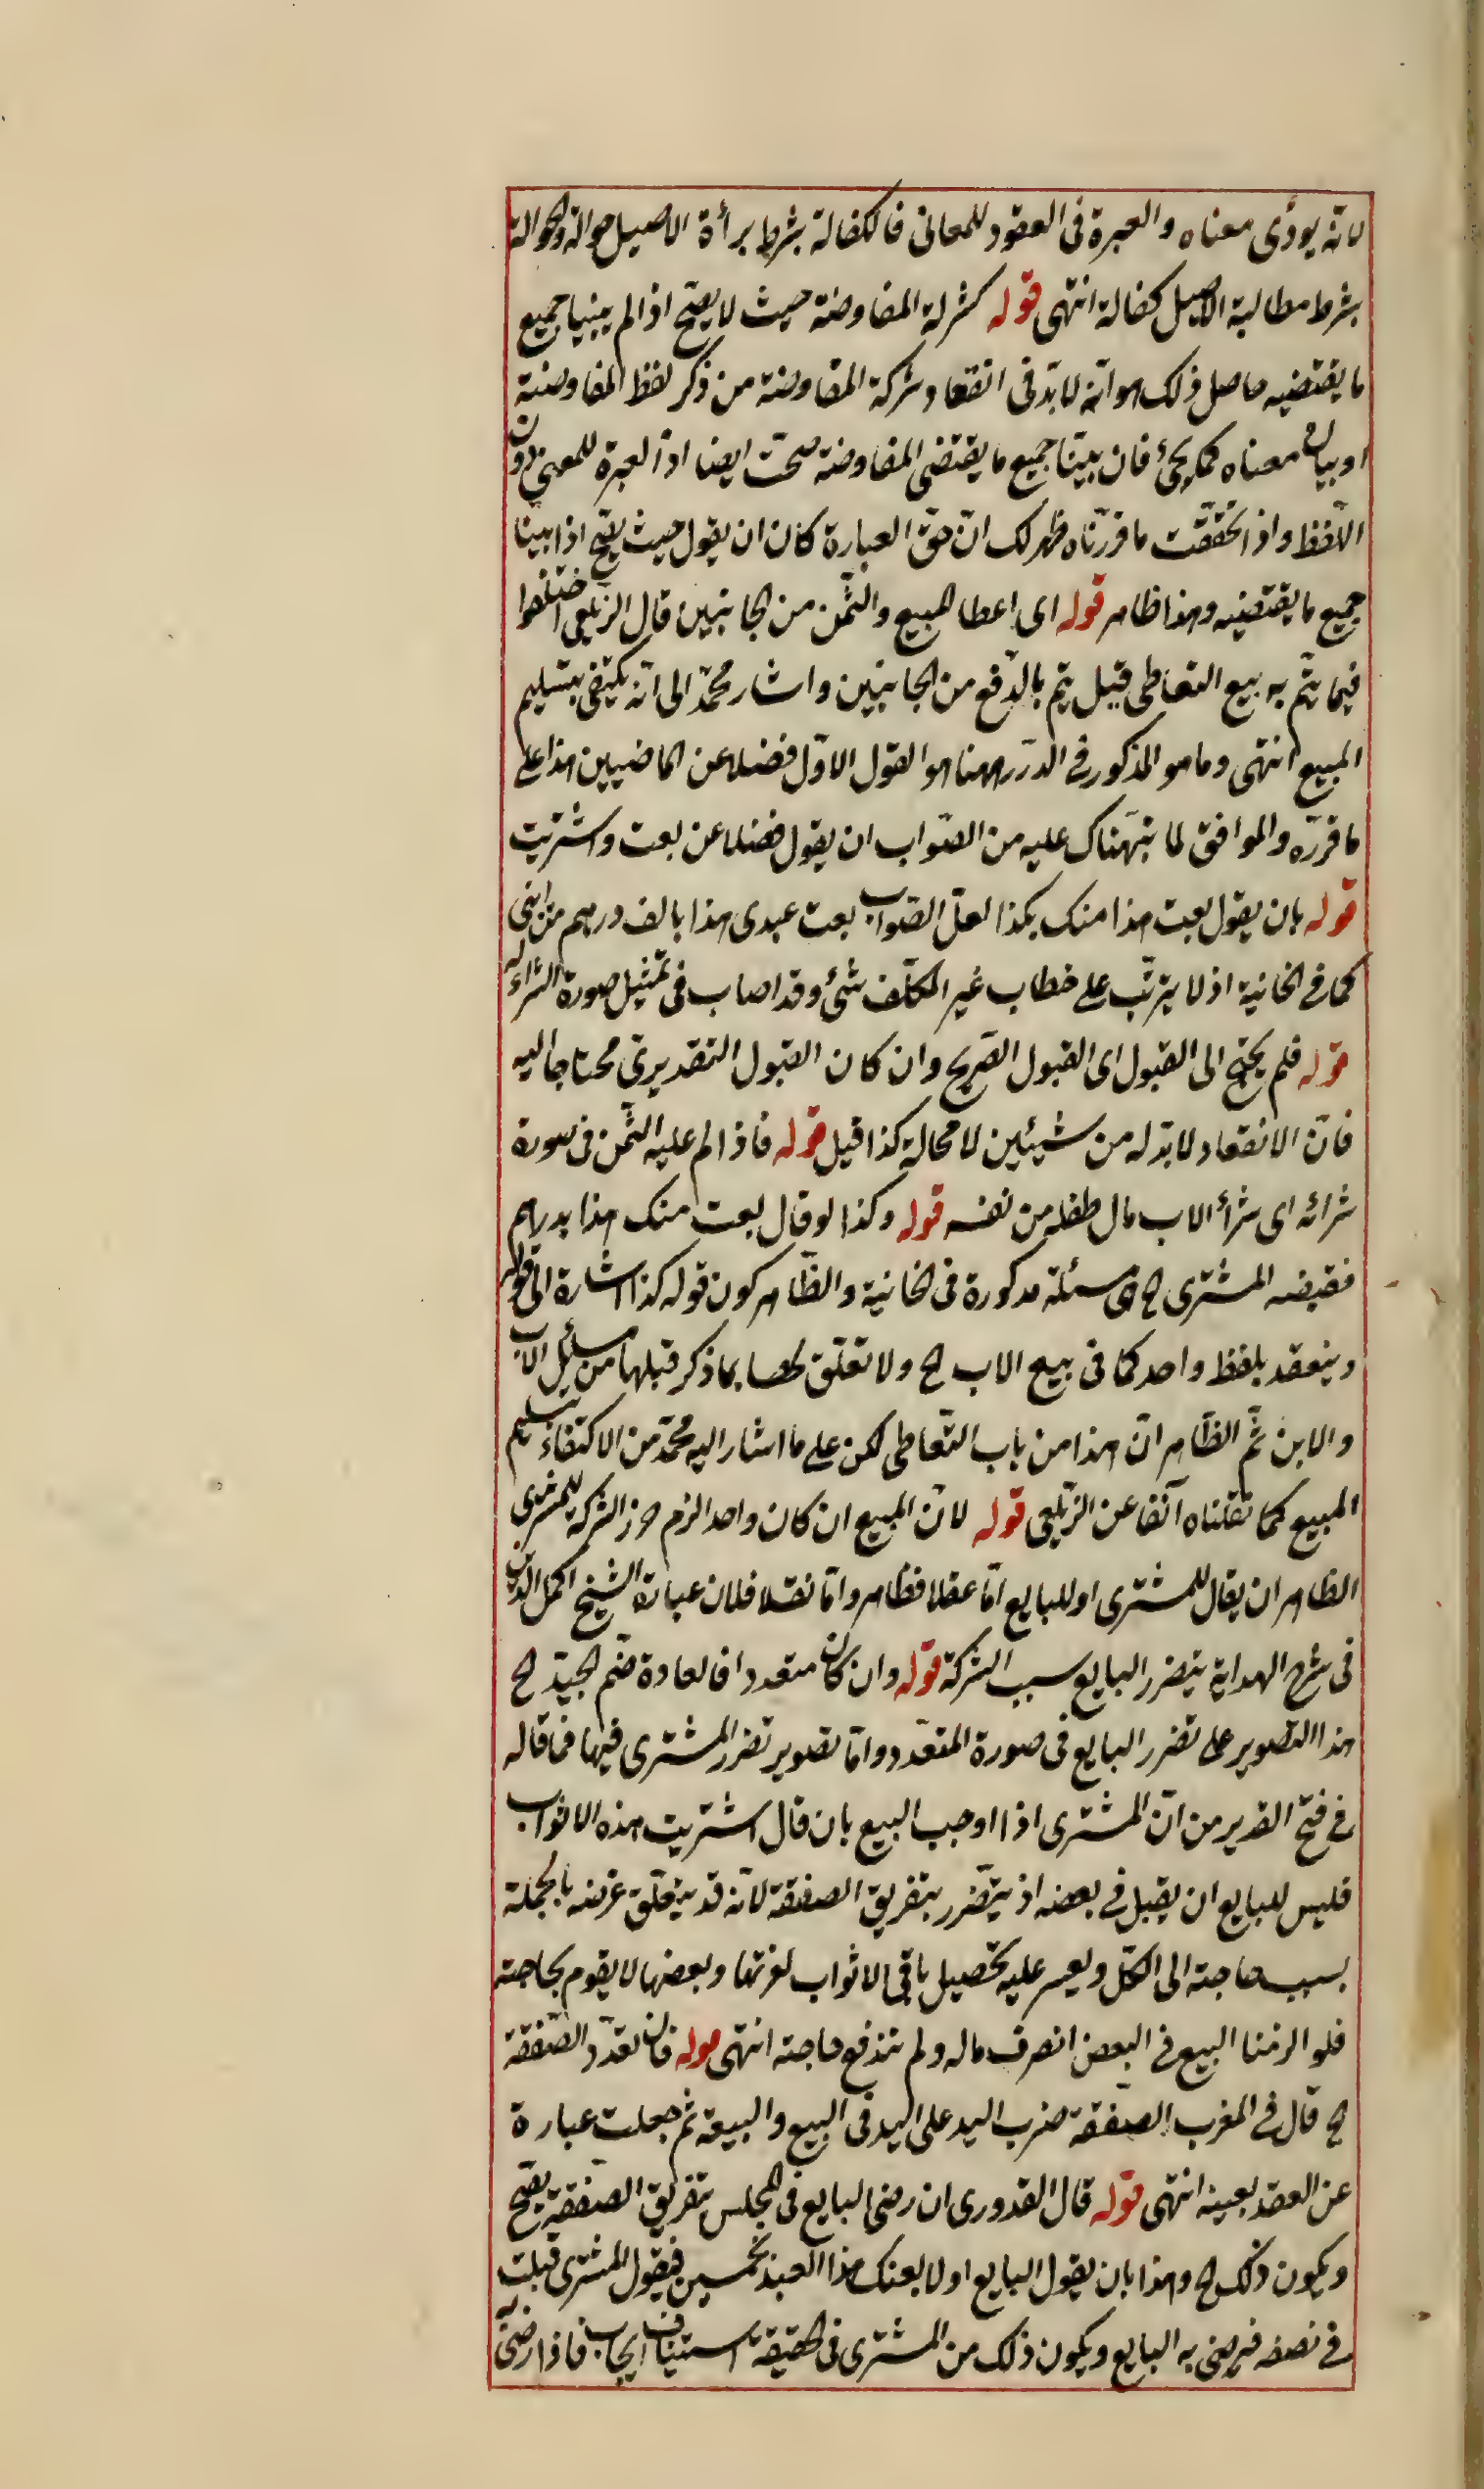 لانه يؤدى معناه والعبرة فى العقود للمعانى فالكفالة بشرط برأة الاصيل حوالة والحوالة
بشرط مطالبة الاصيل كفالة انتهى قوله كشركة المفاوضة حيث لا يصح اذا لم يبينا جميع
ما يقتضيه حاصل ذلك هو انه لا بد فى انعقاد شركة المفاوضة من ذكر لفظ المفاوضة
او بيان معناه كما يجئ فان بينا جميع ما يقتضى المفاوضة صحت ايضا اذ العبرة للمعنى دون
اللفظ واذا تحققت ما قررناه ظهر لك ان حق العبارة كان ان يقول حيث يصح اذا بينا
جميع ما يقتضيه وهذا ظاهر قوله اى اعطا المبيع والثمن من الجانبين قال الزيلعى اختلفوا
فيما يتم به بيع التعاطى قيل يتم بالدفع من الجانبين واشار محمد الى انه يكتفى بتسليم
المبيع انتهى وما هو المذكور فى الدرر ههنا هو القول الاول فضلا عن الماضيين هذا على
ما قرره والموافق لما نبهناك عليه من الصواب ان يقول فضلا عن بعت واشتريت
قوله بان يقول بعت هذا منك بكذا لعل الصواب بعت عبدى هذا بالف درهم من ابنى
كما فى الخانية اذ لا يترتب على خطاب غير المكلف شئ وقد اصاب فى تمثيل صورة الشراء له
قوله فلم يحتج الى القبول اى القبول الصريح وان كان القبول التقديرى محتاجا اليه
فان الانعقاد لا بد له من شيئين لا محالة كذا قيل قوله فاذا لم عليه الثمن فى صورة
شرائه اى شرأ الاب مال طفله من نفسه قوله وكذا لو قال بعت منك هذا بدرهم
فقبضه المشترى الخ هى مسئلة مذكورة فى الخانية والظاهر كون قوله كذا اشارة الى قوله
وينعقد بلفظ واحد كما فى بيع الاب الخ ولا تعلق لها بما ذكر قبلها من مسائل الاب
والابن ثم الظاهر ان هذا من باب التعاطى لكن على ما اشار اليه محمد من الاكتفاء بتسليم
المبيع كما نقلناه آنفا عن الزيلعى قوله لان المبيع ان كان واحدا لزم ضرر الشركة للمشترى
الظاهر ان يقال للمشترى او للبايع اما عقلا فظاهر واما نقلا فلان عبارة الشيخ اكمل الدين
فى شرح الهداية يتضرر البايع بسبب الشركة قوله وان كان متعددا فالعادة ضم الجيد الخ
هذا التصوير على تضرر البايع فى صورة المتعدد واما تصوير تضرر المشترى فيها فما قاله
فى فتح القدير من ان المشترى اذا اوجب البيع بان قال اشتريت هذه الاثواب
فليس للبايع ان يقبل فى بعضه اذ يتضرر بتفريق الصفقة لانه قد يتعلق غرضه بالجملة
بسبب حاجته الى الكل ويعسر عليه تحصيل باقى الاثواب لعزتها وبعضها لا يقوم بحاجته
فلو الزمنا البيع فى البعض انصرف ماله ولم تندفع حاجته انتهى قوله فان تعدد الصفقة
الخ قال فى المغرب الصفقة ضرب اليد على اليد فى البيع والبيعة ثم جعلت عبارة
عن العقد بعينه انتهى قوله قال القدورى ان رضى البايع فى المجلس بتفريق الصفقة يصح
ويكون ذلك الخ وهذا بان يقول البايع اولا بعتك هذا العبد بخمسين فيقول المشترى قبلت
فى نصفه فيرضى به البايع ويكون ذلك من المشترى فى الحقيقة استيناف ايجاب فاذا رضى به